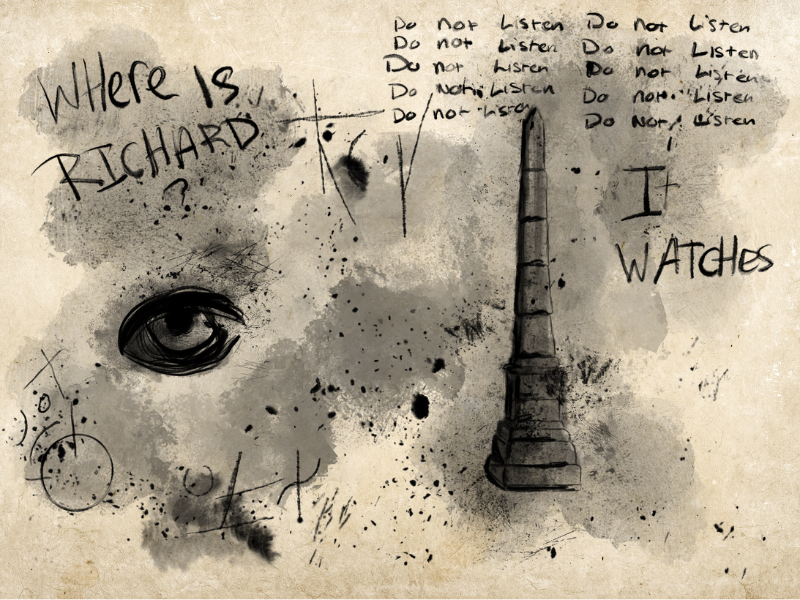 Where Is
RICHARD
?
Do not Listen Do not Listen
Do not Listen Do not Listen
Do not Listen Do not Listen
Do not Listen Do not Listen
Do not Listen Do not Listen
It
WATCHES